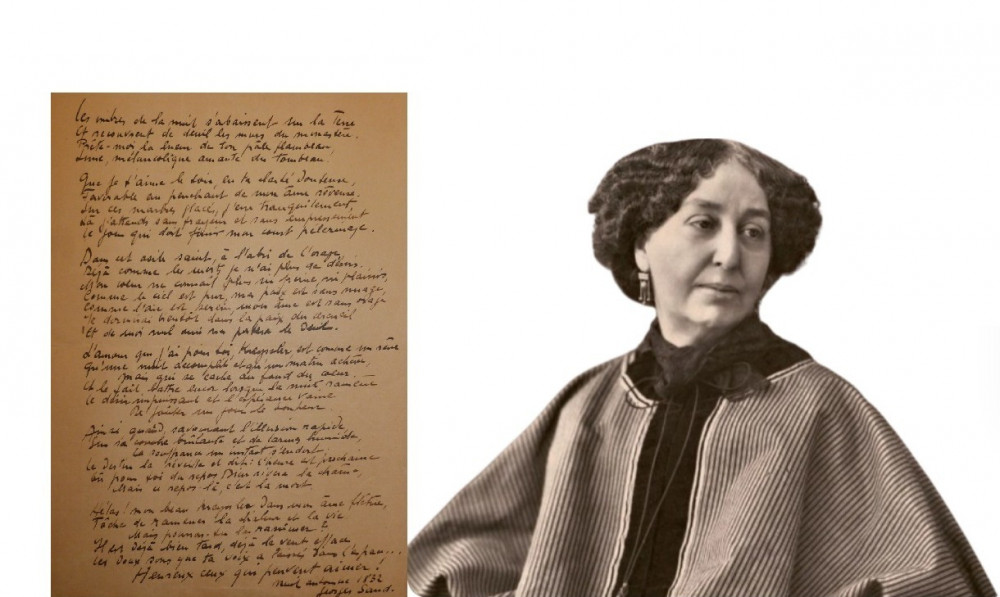 Les ombres de la nuit s'abaissent sur la terre
Et recouvrent de deuil les murs du monastère.
Prête-moi la lueur de ton pâle flambeau,
Lune, mélancolique amante du tombeau!
Que je t'aime le soir, en ta clarté douteuse,
Favorable au penchant de mon âme rêveuse
Sur ces marbres glacés, j'erre tranquillement
Là j'attends sans frayeur et sans empressement
Le jour qui doit finir mon court pèlerinage.
Dans cet asile saint, à l'abri de l'orage
Déjà comme les morts je n'ai plus de désirs.
Mon cœur ne connait plus ni peine, ni plaisirs,
Comme le ciel est pur, ma paix est sans nuage,
Comme l'air est serein, mon âme est sans orage
Je dormirai bientôt dans la paix du cercueil
Et de moi nul ami ne portera le deuil.
L'amour que j'ai pour toi, est comme un rêve
Qu'une nuit accomplit et qu'un matin achève
Mais qui se cache au fond du cœur
Et le fait battre encor lorsque la nuit ramène
Le désir impuissant et l'espérance vaine
De goûter un jour de bonheur.
Ainsi quand, savourant l'illusion rapide
Sur sa couche brûlante et de larmes humide,
La souffrance un instant s'endort
Le Destin la réveille et dit: l'heure est prochaine
Où pour toi du repos Dieu la chaîne,
Mais ce repos-là, c'est la mort
Hélas! mon beau dans mon âme flétrie,
Tâche de ramener la chaleur et la vie
Mais pourras-tu la ranimer?
Il est déjà bien tard, déjà le vent efface
Les doux sons que ta voix a laissés dans l'espace...
Heureux ceux qui peuvent aimer!
automne 1832
Georges Sand.